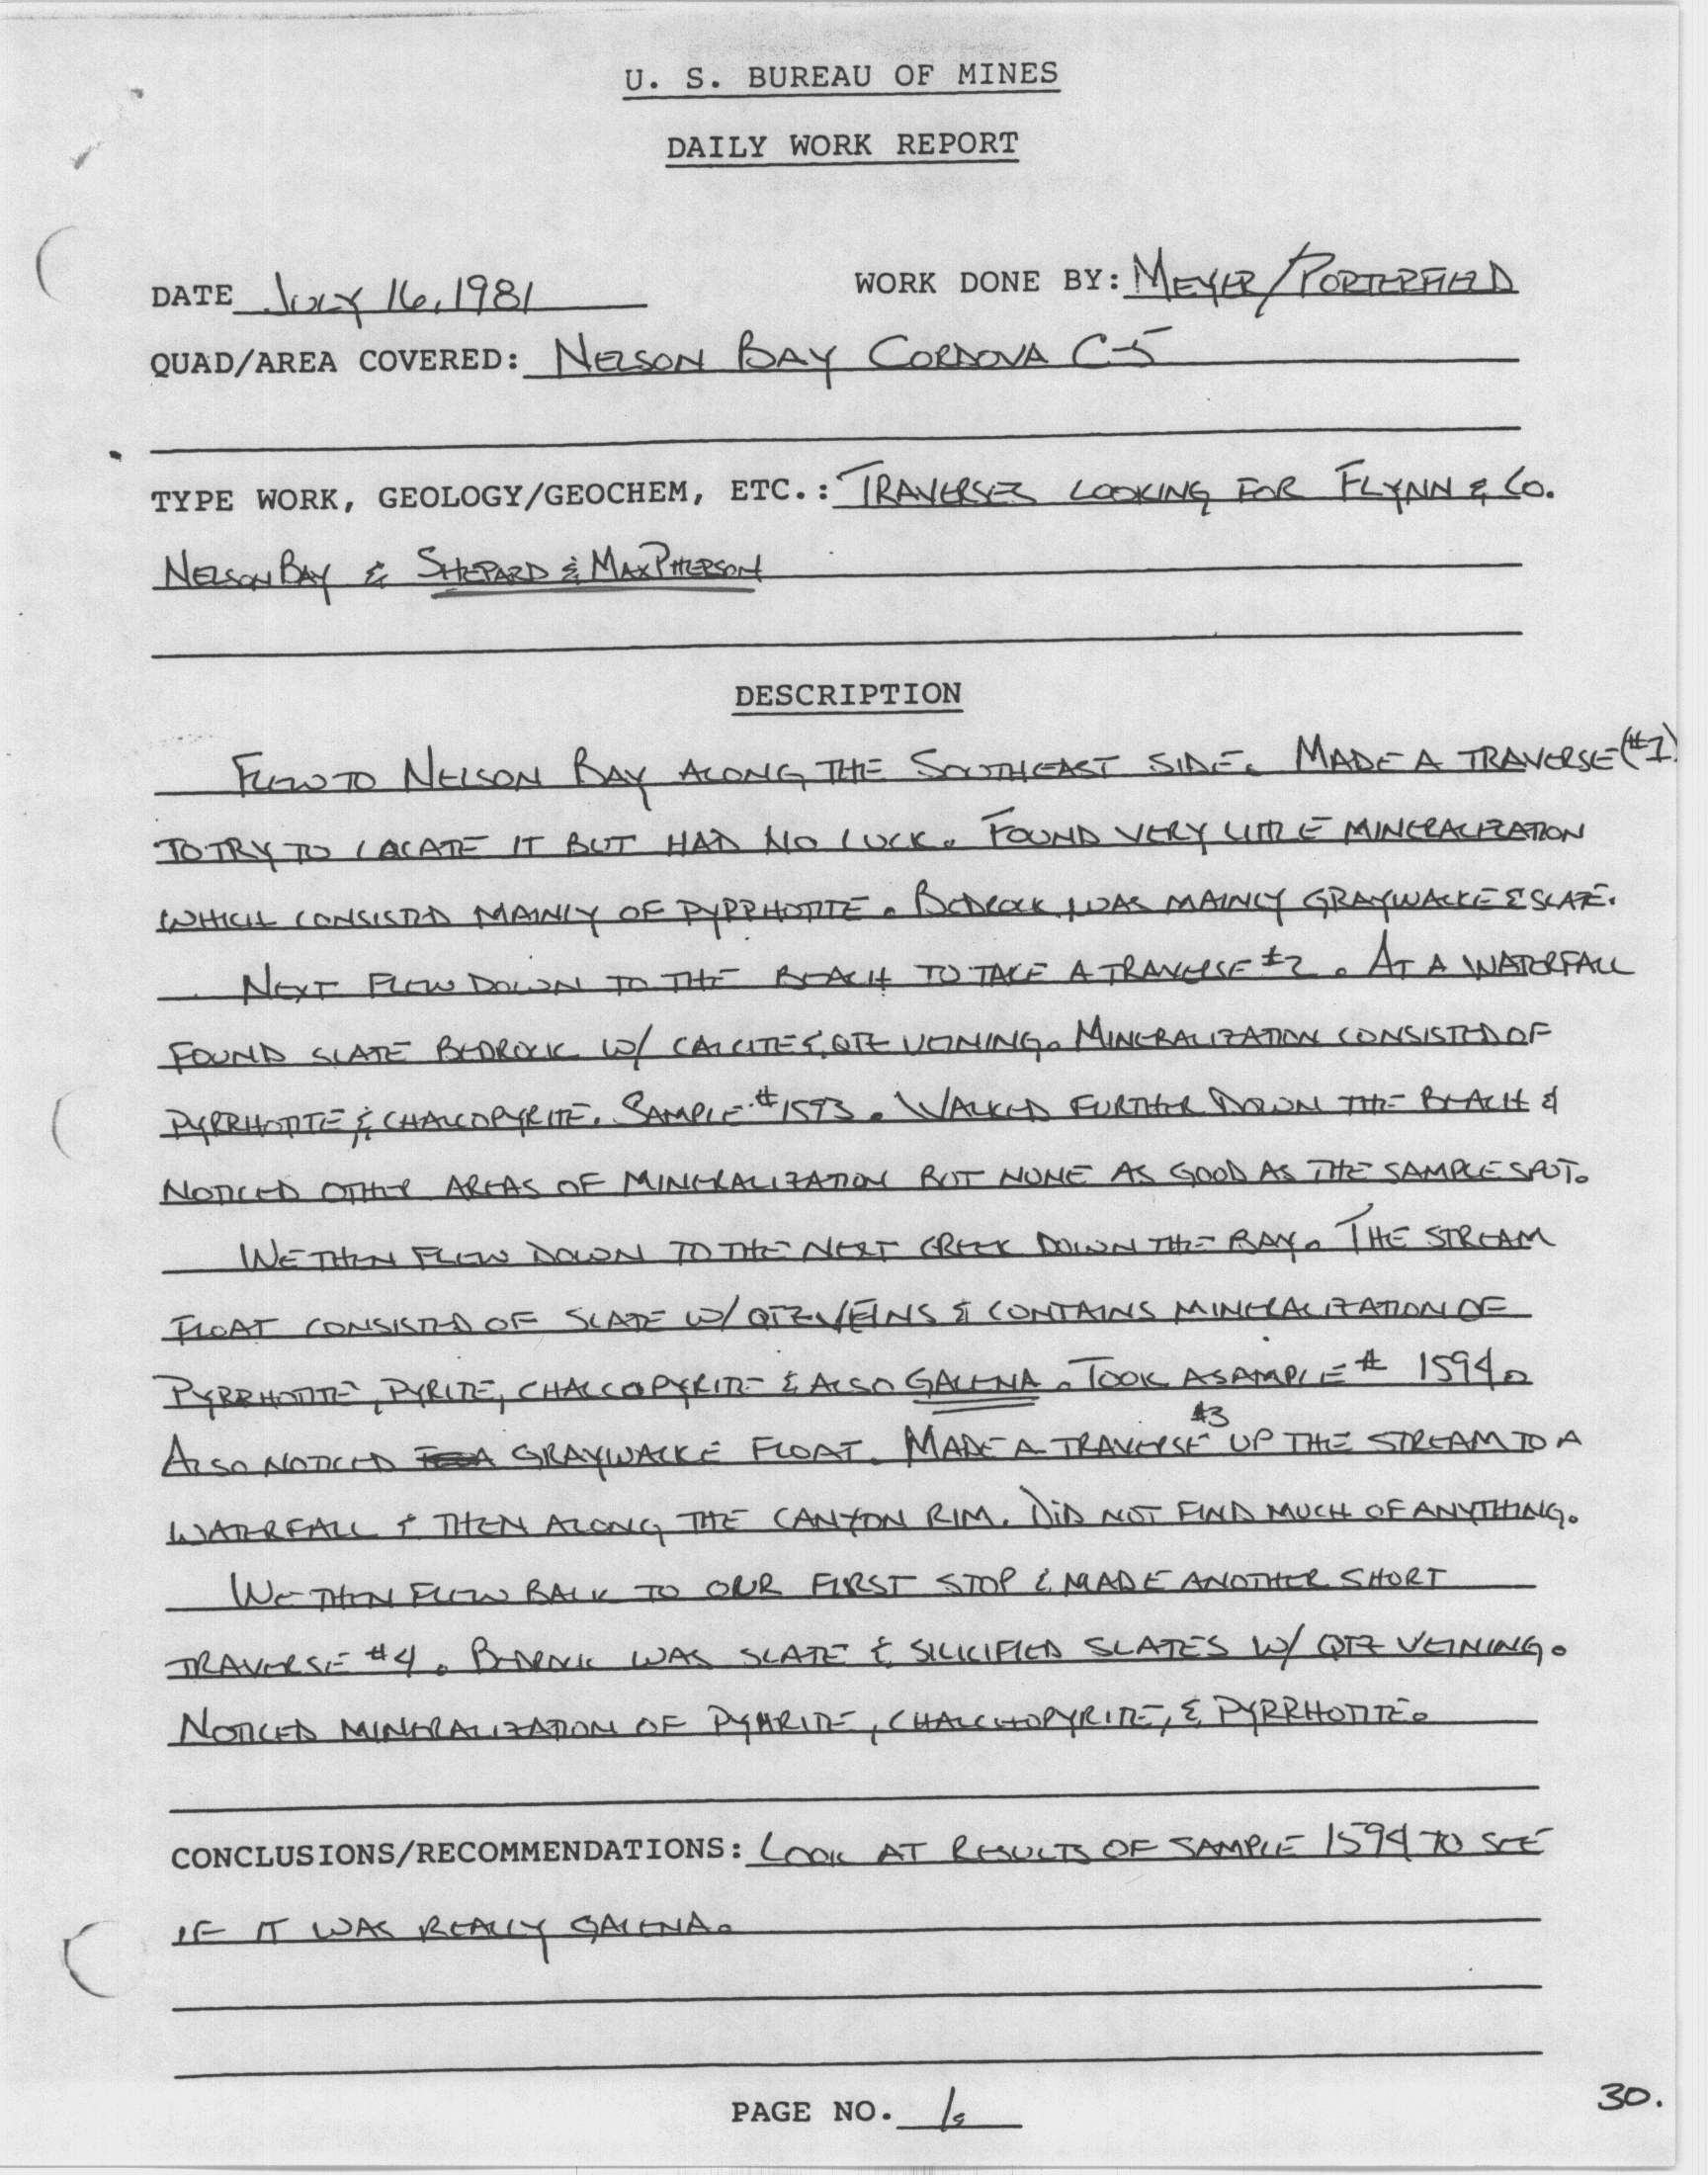 U. S. BUREAU OF MINES
DAILY WORK REPORT
DATE July 16, 1981 WORK DONE BY: MEYER/PORTERFIELD
QUAD/AREA COVERED: NELSON BAY CORDOVA C-5
TYPE WORK, GEOLOGY/GEOCHEM, ETC.: TRAVERSES LOOKING FOR FLYNN & CO.
NELSON BAY & SHEPARD & MAXPHERSON
DESCRIPTION
FLEW TO NELSON BAY ALONG THE SOUTHEAST SIDE. MADE A TRAVERSE (#1)
TO TRY TO LOCATE IT BUT HAD NO LUCK. FOUND VERY LITTLE MINERALIZATION
WHICH CONSISTED MAINLY OF PYRRHOTITE. BEDROCK WAS MAINLY GRAYWACKE & SLATE.
NEXT FLEW DOWN TO THE BEACH TO TAKE A TRAVERSE #2. AT A WATERFALL
FOUND SLATE BEDROCK W/ CALCITE & QTZ VEINING. MINERALIZATION CONSISTED OF
PYRRHOTITE & CHALCOPYRITE. SAMPLE #1593. WALKED FURTHER DOWN THE BEACH &
NOTICED OTHER AREAS OF MINERALIZATION BUT NONE AS GOOD AS THE SAMPLE SPOT.
WE THEN FLEW DOWN TO THE NEXT CREEK DOWN THE BAY. THE STREAM
FLOAT CONSISTED OF SLATE W/ QTZ VEINS & CONTAINS MINERALIZATION OF
PYRRHOTITE, PYRITE, CHALCOPYRITE & ALSO GALENA. TOOK A SAMPLE # 1594.
ALSO NOTICED GRAYWACKE FLOAT. MADE A TRAVERSE #3 UP THE STREAM TO A
WATERFALL & THEN ALONG THE CANYON RIM. DID NOT FIND MUCH OF ANYTHING.
WE THEN FLEW BACK TO OUR FIRST STOP & MADE ANOTHER SHORT
TRAVERSE #4. BEDROCK WAS SLATE & SILICIFIED SLATES W/ QTZ VEINING.
NOTICED MINERALIZATION OF PYRITE, CHALCHOPYRITE, & PYRRHOTITE.
CONCLUSIONS/RECOMMENDATIONS: LOOK AT RESULTS OF SAMPLE 1594 TO SEE
IF IT WAS REALLY GALENA.
PAGE NO. 1
30.